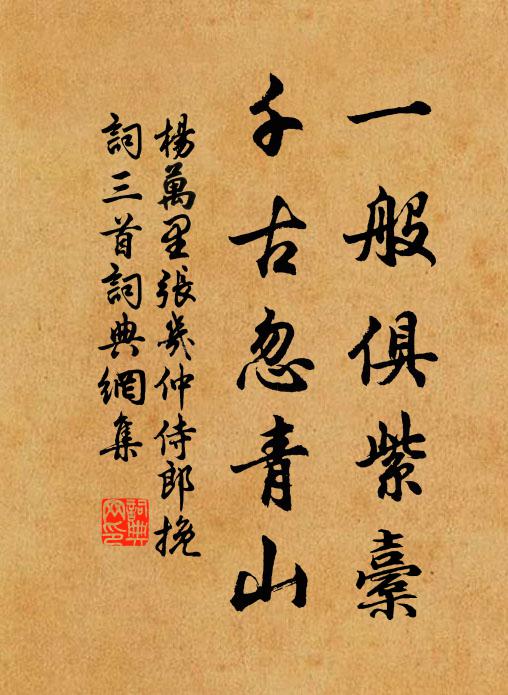 一般俱紫橐
千古忽青山
楊萬里張幾仲侍郎挽
詞三首詞典網集
詞典網印